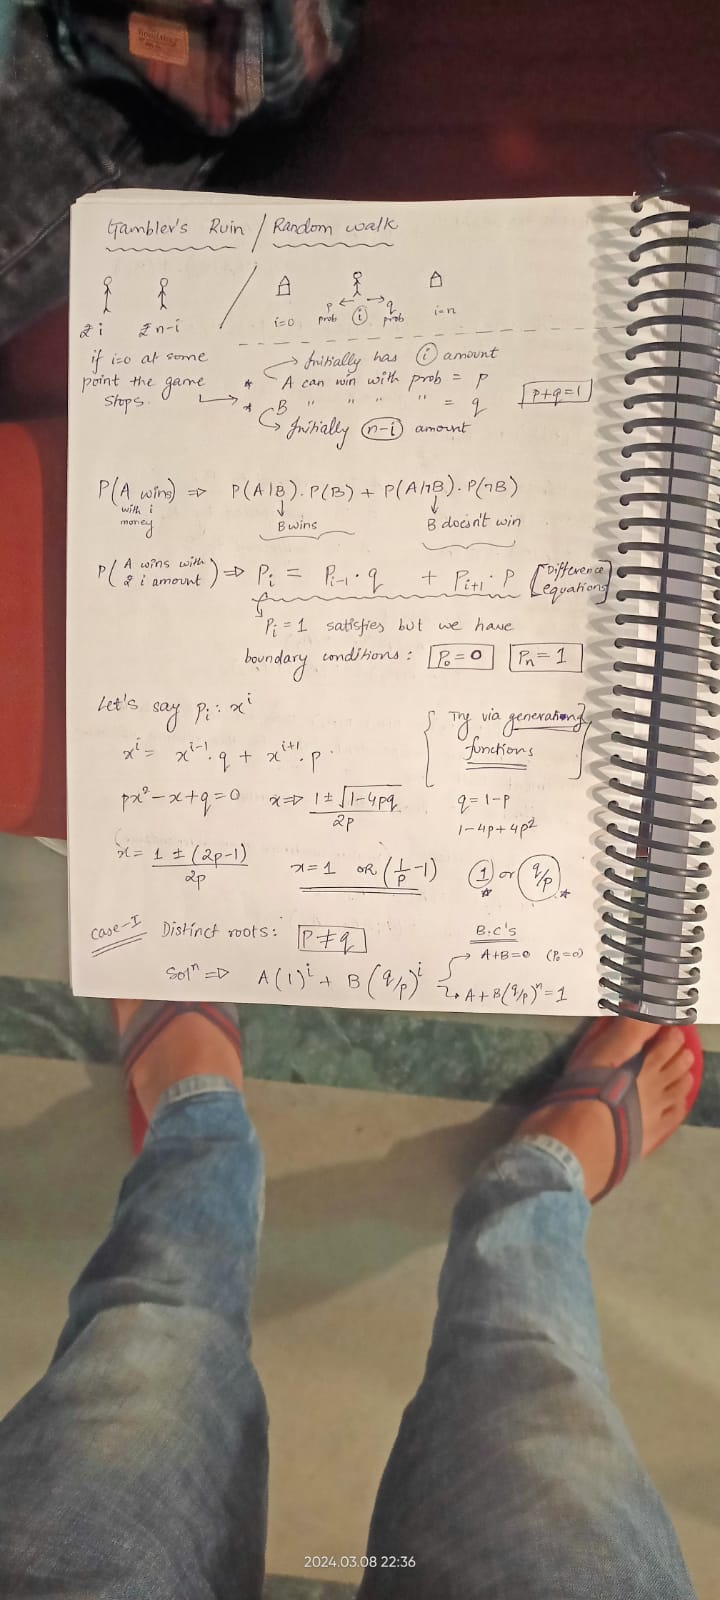 Gambler's Ruin / Random walk
i=0 p prob i q prob i=n
₹ i ₹ n-i
if i=0 at some
point the game
stops.
→ Initially has (i) amount
* A can win with prob = p
* B " " " " = q
p+q=1
→ Initially (n-i) amount
P(A wins) ⇒ P(A|B).P(B) + P(A|¬B).P(¬B)
with i
money
↓ B wins ↓ B doesn't win
P(A wins with ₹ i amount) ⇒ Pi = Pi-1.q + Pi+1.p [Difference equations]
Pi = 1 satisfies but we have
boundary conditions: P₀=0 Pn=1
Let's say pi: xⁱ
{Try via generationg
functions}
xⁱ = xⁱ⁻¹.q + xⁱ⁺¹.p
px²-x+q=0 x⇒ 1±√1-4pq / 2p
q=1-p
1-4p+4p²
x = 1 ± (2p-1) / 2p x=1 OR (1/p -1) (1) or (q/p)
* *
case-I Distinct roots: P≠q
B.C's
→ A+B=0 (P₀=0)
Solⁿ ⇒ A(1)ⁱ + B(q/p)ⁱ
→ A+B(q/p)ⁿ=1
2024.03.08 22:36